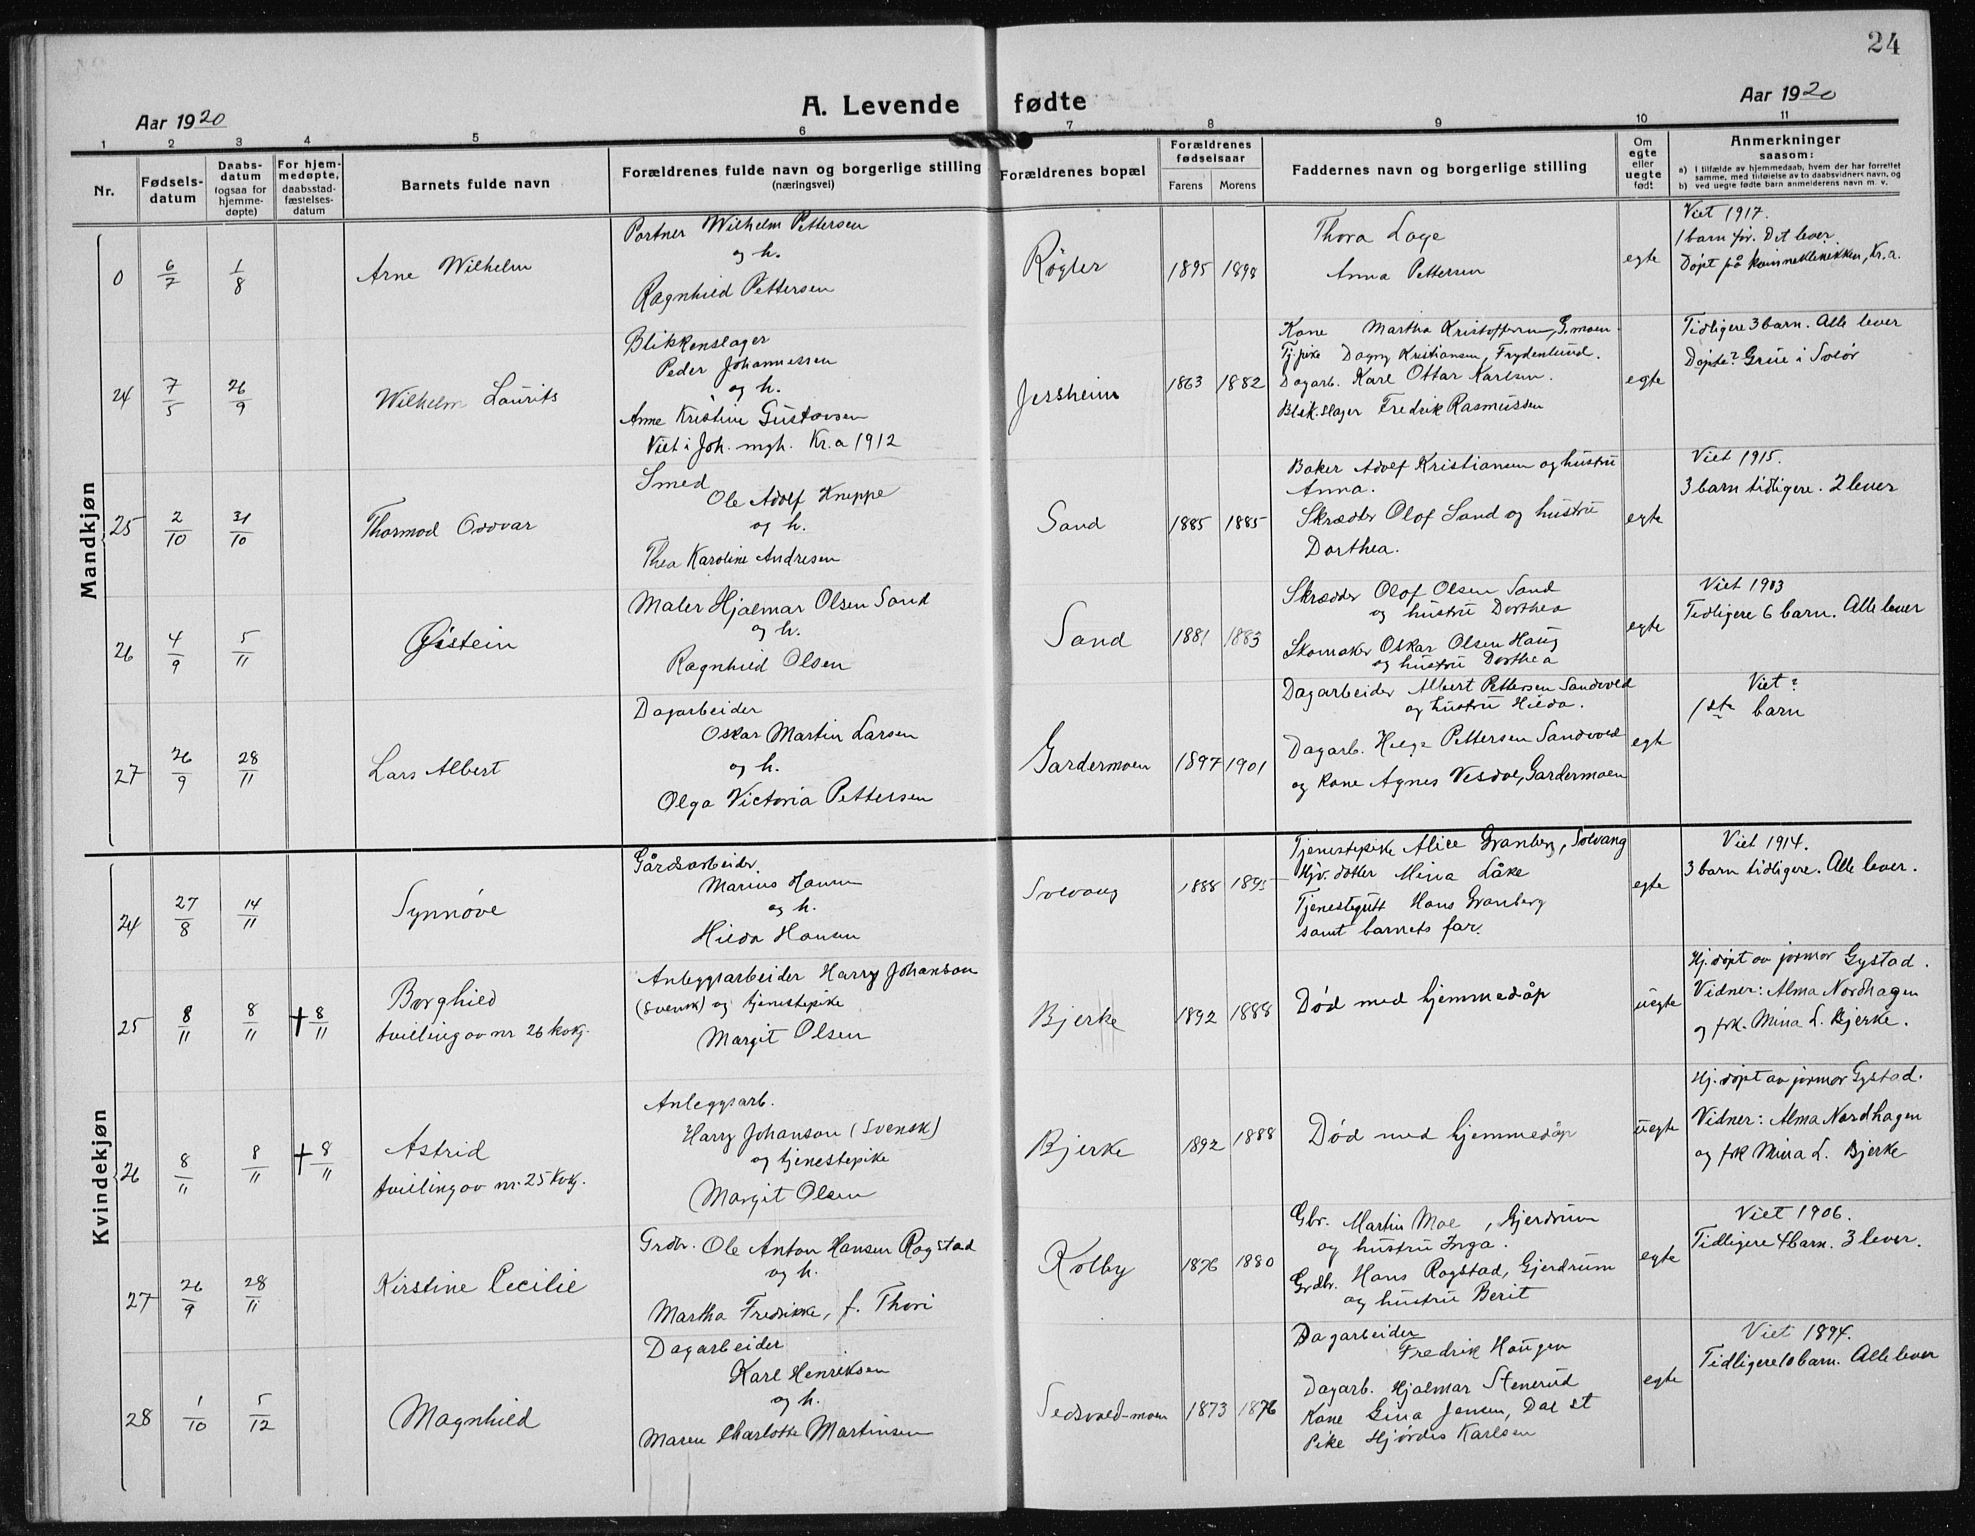 24
A. Levende fødte
Aar 1920
Aar 1920
1 2 3 4 5 6 7 8 9 10 11
Nr.
Fødsels-
datum
Daabs-
datum
(ogsaa for
hjemme-
døpte)
For hjem-
medøpte,
daabsstad-
fæstelses-
datum
Barnets fulde navn
Forældrenes fulde navn og borgerlige stilling
(næringsvei)
Forældrenes bopæl
Forældrenes
fødselsaar
Farens Morens
Faddernes navn og borgerlige stilling
Om
egte
eller
uegte
født
Anmerkninger
saasom:
a) I tilfælde av hjemmedaab, hvem der har forrettet
samme, med tilføielse av to daabsvidners navn, og
b) ved uegte fødte barn anmelderens navn m. v.
Mandkjøn
0
6/7
1/8
Arne Wilhelm
Portner Wilhelm Pettersen
og h.
Ragnhild Pettersen
Røgler
1895 1898
Thora Lage
Anna Pettersen
egte
Viet 1917.
1 barn før. Det lever
Døpt på kvinneklinikken, Kr.a.
24
7/5
26/9
Wilhelm Laurits
Blikkenslager
Peder Johannessen
og h.
Anne Kristine Gustavsen
Viet i Joh. mgh. Kr.a 1912
Jessheim
1863 1882
Kone Martha Kristoffersen, G.moen
Tj.pike Dagny Kristiansen, Frydenlund.
Dagarb. Karl Ottar Karlsen.
Blik.slager Fredrik Rasmussen
egte
Tidligere 3 barn. Alle lever
Døpte? Grue i Solør
25
2/10
31/10
Thormod Oddvar
Smed
Ole Adolf Kneppe
og h.
Thea Karoline Andresen
Sand
1885 1885
Baker Adolf Kristiansen og hustru
Anna.
Skrædder Olof Sand og hustru
Dorthea.
egte
Viet 1915.
3 barn tidligere. 2 lever
26
4/9
5/11
Øistein
Maler Hjalmar Olsen Sand
og h.
Ragnhild Olsen
Sand
1881 1883
Skrædder Olof Olsen Sand
og hustru Dorthea
Skomaker Oskar Olsen Haug
og hustru Dorthea
egte
Viet 1903
Tidligere 6 barn. Alle lever
27
26/9
28/11
Lars Albert
Dagarbeider
Oskar Martin Larsen
og h.
Olga Victoria Pettersen
Gardermoen
1897 1901
Dagarbeider Albert Pettersen Sandvold
og hustru Hilda.
Dagarb. Helge Pettersen Sandvold
og kone Agnes Vesdal, Gardermoen
egte
Viet?
1ste barn
Kvindekjøn
24
27/8
14/11
Synnøve
Gårdsarbeider
Marius Hansen
og h.
Hilda Hansen
Solvang
1888 1895
Tjenestepike Alice Granberg, Solvang
Hjv. datter Mina Låke
Tjenestegutt Hans Granberg
samt barnets far.
egte
Viet 1914.
3 barn tidligere. Alle lever.
25
8/11
8/11
† 8/11
Borghild
tvilling av nr 26 kvkj.
Anleggsarbeider Harry Johanson
(svensk) og tjenestepike
Margit Olsen
Bjerke
1892 1888
Død med hjemmedåp
uegte
Hj.døpt av jormor Gystad.
Vidner: Alma Nordhagen
og frk. Mina L. Bjerke.
26
8/11
8/11
† 8/11
Astrid
tvilling av nr. 25 kvkj.
Anleggsarb.
Harry Johanson (svensk)
og tjenestepike
Margit Olsen
Bjerke
1892 1888
Død med hjemmedåp
uegte
Hj.døpt av jormor Gystad.
Vidner: Alma Nordhagen
og frk Mina L. Bjerke
27
26/9
28/11
Kirstine Cecilie
Grdbr. Ole Anton Hansen Rogstad
og h.
Martha Fredrikke, f. Thori
Kolby
1876 1880
Gbr. Martin Moe, Gjerdrum
og hustru Inga.
Grdbr. Hans Rogstad, Gjerdrum
og hustru Berit
egte
Viet 1906.
Tidligere 4 barn. 3 lever.
28
1/10
5/12
Magnhild
Dagarbeider
Karl Henriksen
og h.
Maren Charlotte Martinsen
1873 1876
Dagarbeider
Fredrik Haugen
Dagarb. Hjalmar Stenerud
Kone Gina Jensen, Dal st
Pike Hjørdis Karlsen
egte
Viet 1894.
Tidligere 10 barn. Alle lever